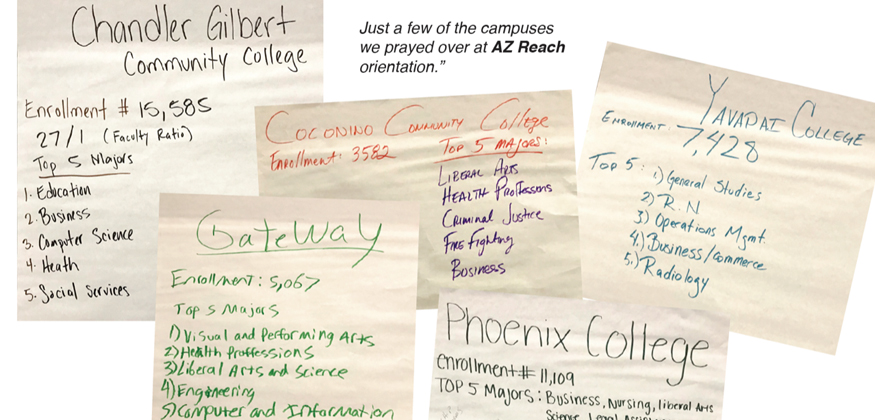 Chandler Gilbert
Community College
Enrollment # 15,585
27/1 (Faculty Ratio)
Top 5 Majors
1. Education
2. Business
3. Computer Science
4. Heath
5. Social Services
Just a few of the campuses
we prayed over at AZ Reach
orientation."
Coconino Community College
Enrollment: 3582
Top 5 Majors:
Liberal Arts
Health Proffessions
Criminal Justice
Fire Fighting
Business
Yavapai College
Enrollment: 7,428
Top 5: 1) General Studies
2) R.N
3) Operations Mgmt.
4.) Business/Commerce
5.) Radiology
GateWay
Enrollment: 5,067
Top 5 Majors
1) Visual and Performing Arts
2) Health Proffessions
3) Liberal Arts and Science
4) Engineering
5) Computer and Information
Phoenix College
enrollment # 11,109
TOP 5 Majors: Business, Nursing, liberal Arts
Science, Legal